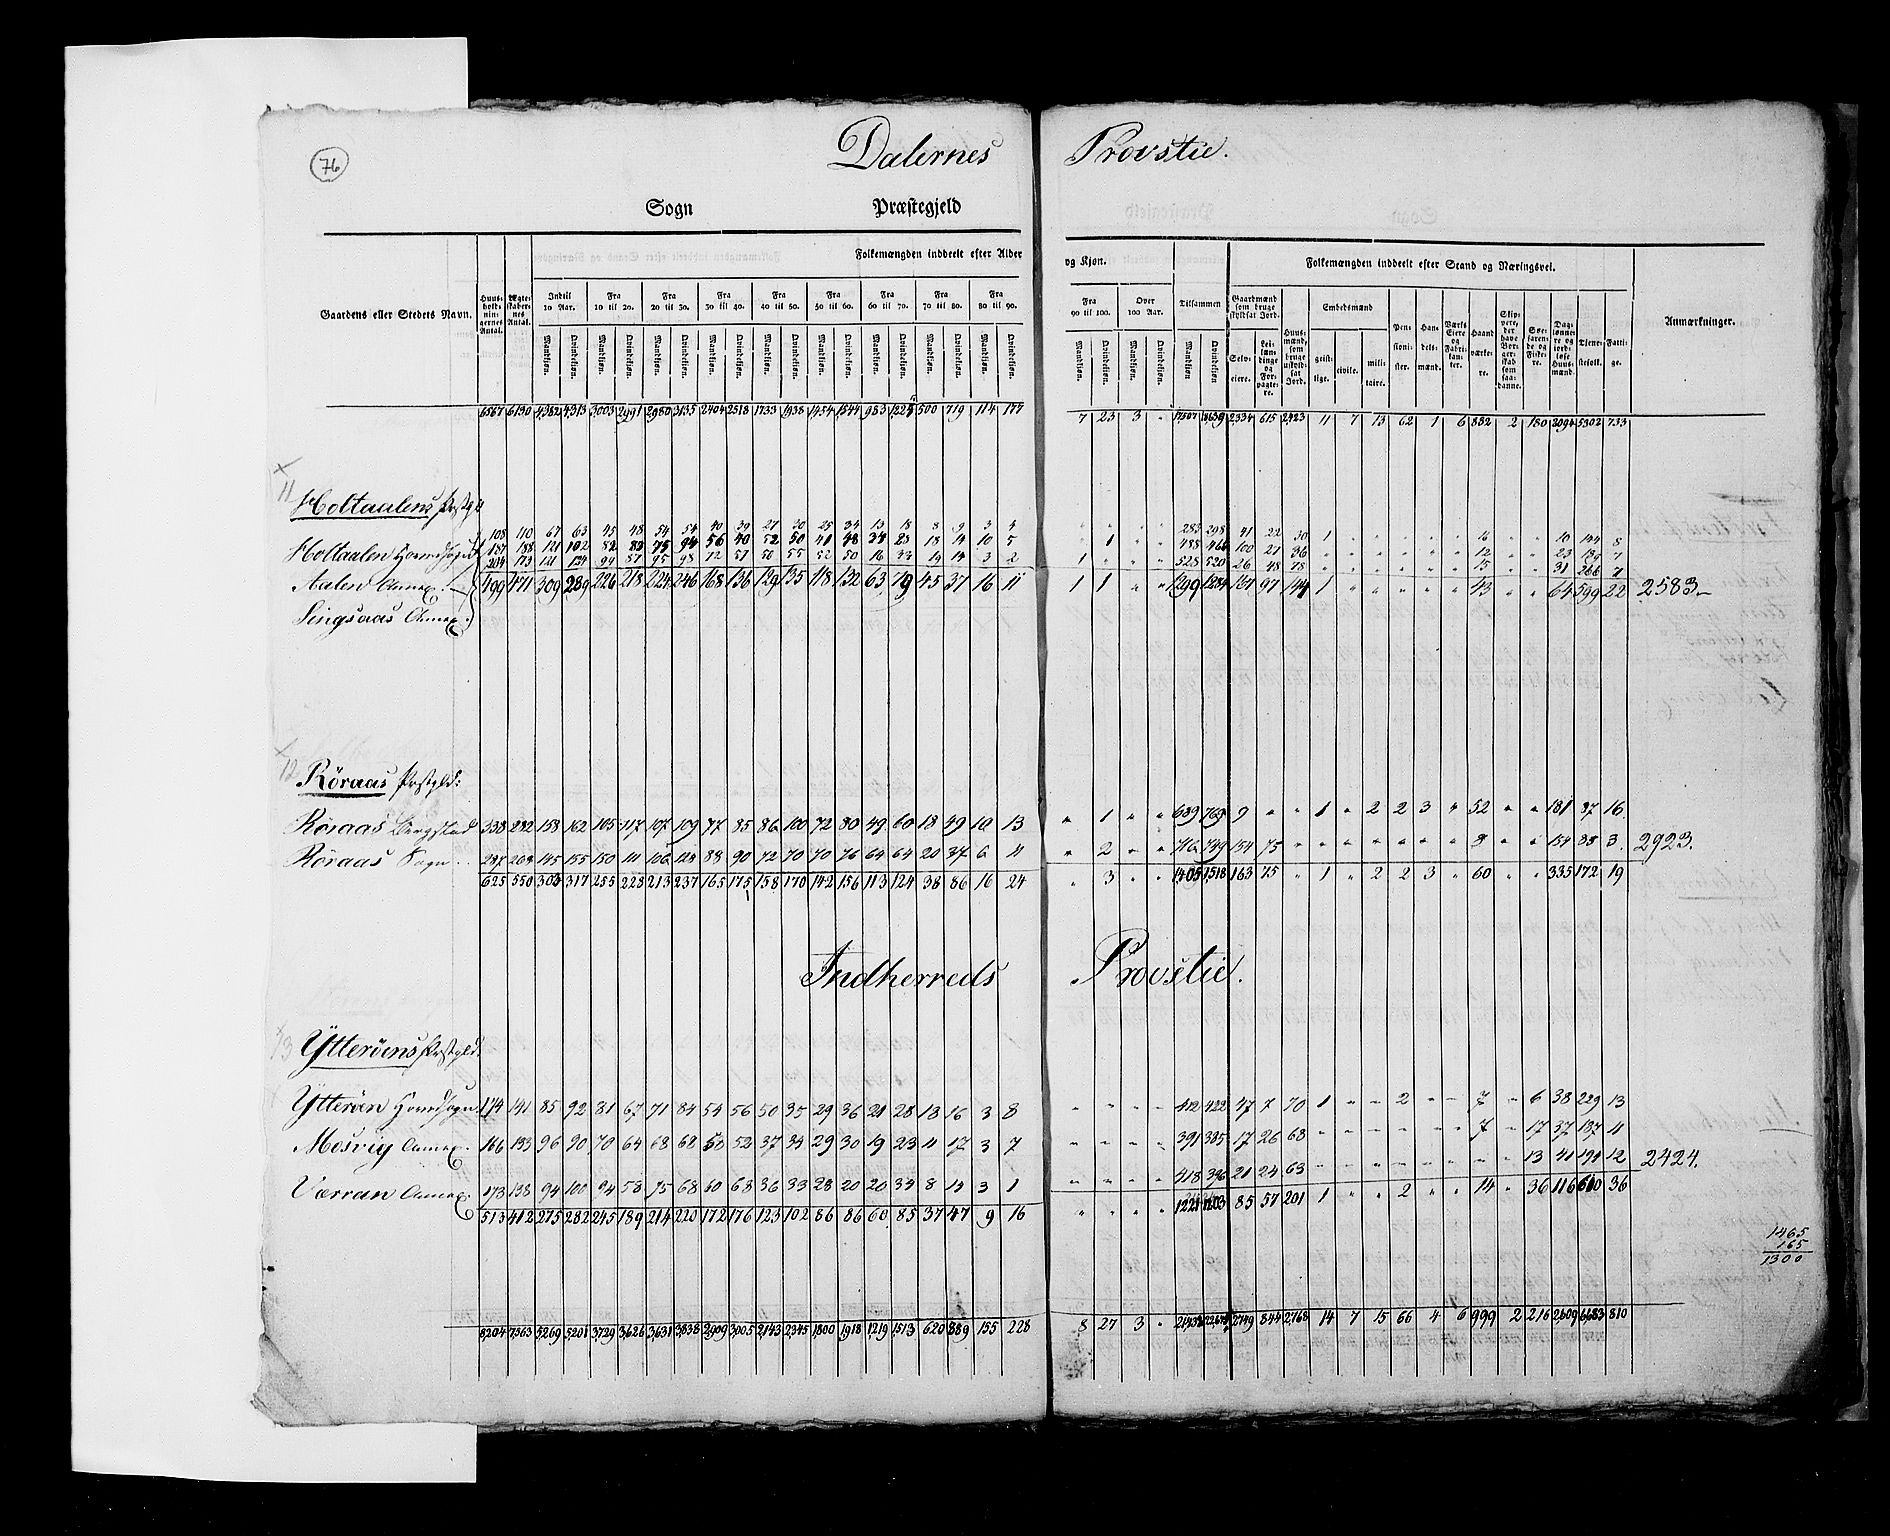 76
Dalernes Provstie.
Sogn Præstegjeld
Folkemængden inddeelt efter Alder og Kjøn.
Folkemængden inddeelt efter Stand og Næringsvei.
Gaardens eller Stedets Navn.
Huus-holdnin-gernes Antal.
Ægte-skaber-nes Antal.
Indtil 10 Aar.
Fra 10 til 20.
Fra 20 til 30.
Fra 30 til 40.
Fra 40 til 50.
Fra 50 til 60.
Fra 60 til 70.
Fra 70 til 80.
Fra 80 til 90.
Fra 90 til 100.
Over 100 Aar.
Tilsammen
Mandkjøn. Qvindekjøn.
Gaardmænd som bruge skyldsat Jord.
Selv-eiere.
Lei-lændinge og For-pagte-re.
Huus-mænd, som bruge uskyld-sat Jord.
Embedsmænd
geist-lige.
civile.
mili-taire.
Pen-sioni-ster.
Han-dels-mænd.
Værks Eiere og Fabri-kan-ter.
Haand værke-re.
Skip-pere, der have Bor-ger-skab som saa-danne.
Søe-farende og Fiske-re.
Dag-lønne-re og jord-løse Huus-mænd.
Tjene-stefolk.
Fatti-ge.
Anmærkninger.
6567 6130 4382 4313 3003 2991 2980 3135 2404 2518 1733 1938 1454 1544 983 1225 500 719 114 177 7 23 3 " 2334 615 2423 11 7 13 62 1 6 882 2 180 2094 5302 733
11
Holtaalens Præstgld
108 110 67 63 45 48 54 54 40 39 27 30 25 34 13 18 8 9 3 4 " " " " 283 298 41 22 30 1 " " " " " 16 " " 10 144 8
Holtaalen Hovedsogn
187 188 121 102 82 83 75 94 56 40 52 50 41 48 34 23 18 14 10 5 " 1 " " 488 466 100 27 36 " " " " " " 12 " " 23 189 7
204 173 121 124 99 87 95 98 72 57 50 55 52 50 16 33 19 14 3 2 1 " " " 528 520 26 48 78 " " " " " " 15 " " 31 266 7
Aalen Annex.
499 471 309 289 226 218 224 246 168 136 129 135 118 132 63 79 45 37 16 11 1 1 " " 1299 1284 167 97 144 1 " " " " " 43 " " 64 599 22 2583
Singsaas Annex.
12
Röraas Præstgld:
Röraas Bergstad 338 282 158 162 105 117 107 109 77 85 86 100 72 80 49 60 18 49 10 13 " 1 " " 689 769 9 " " 1 " 2 2 3 " 52 " " 181 87 16
Röraas Sogn 287 268 145 155 150 111 106 128 88 90 72 70 70 76 64 64 20 37 6 11 " 2 " " 716 749 154 75 " " " " " " " 8 " " 154 85 3. 2923.
625 550 303 317 255 228 213 237 165 175 158 170 142 156 113 124 38 86 16 24 " 3 " " 1405 1518 163 75 " 1 " 2 2 3 " 60 " " 335 172 19
Indherreds Provstie.
13
Ytteröens Præstgld.
Ytteröen Hovedsogn. 174 141 85 92 81 67 71 84 54 56 50 35 29 36 21 28 18 16 3 8 " " " " 412 422 47 7 70 1 " " 2 " " 7 " 6 38 229 13
Mosvig Annex. 166 133 96 90 70 64 68 68 58 52 37 34 29 30 19 23 11 17 3 7 " " " " 391 385 17 26 68 " " " " " " 7 " 17 37 187 11
Værran Annex. 173 138 94 100 94 58 75 68 60 68 36 33 28 20 20 34 8 14 3 1 " " " " 418 396 21 24 63 " " " " " " " " 13 41 194 12 2424.
513 412 275 282 245 189 214 220 172 176 123 102 86 86 60 85 37 47 9 16 " " " " 1221 1203 85 57 201 1 " " 2 " " 14 " 36 116 610 36
1465
165
1300
8204 7563 5269 5201 3729 3626 3631 3838 2909 3005 2143 2345 1800 1918 1219 1513 620 889 155 228 8 27 3 " 2749 844 2768 14 7 15 66 4 6 999 2 216 2609 6683 810